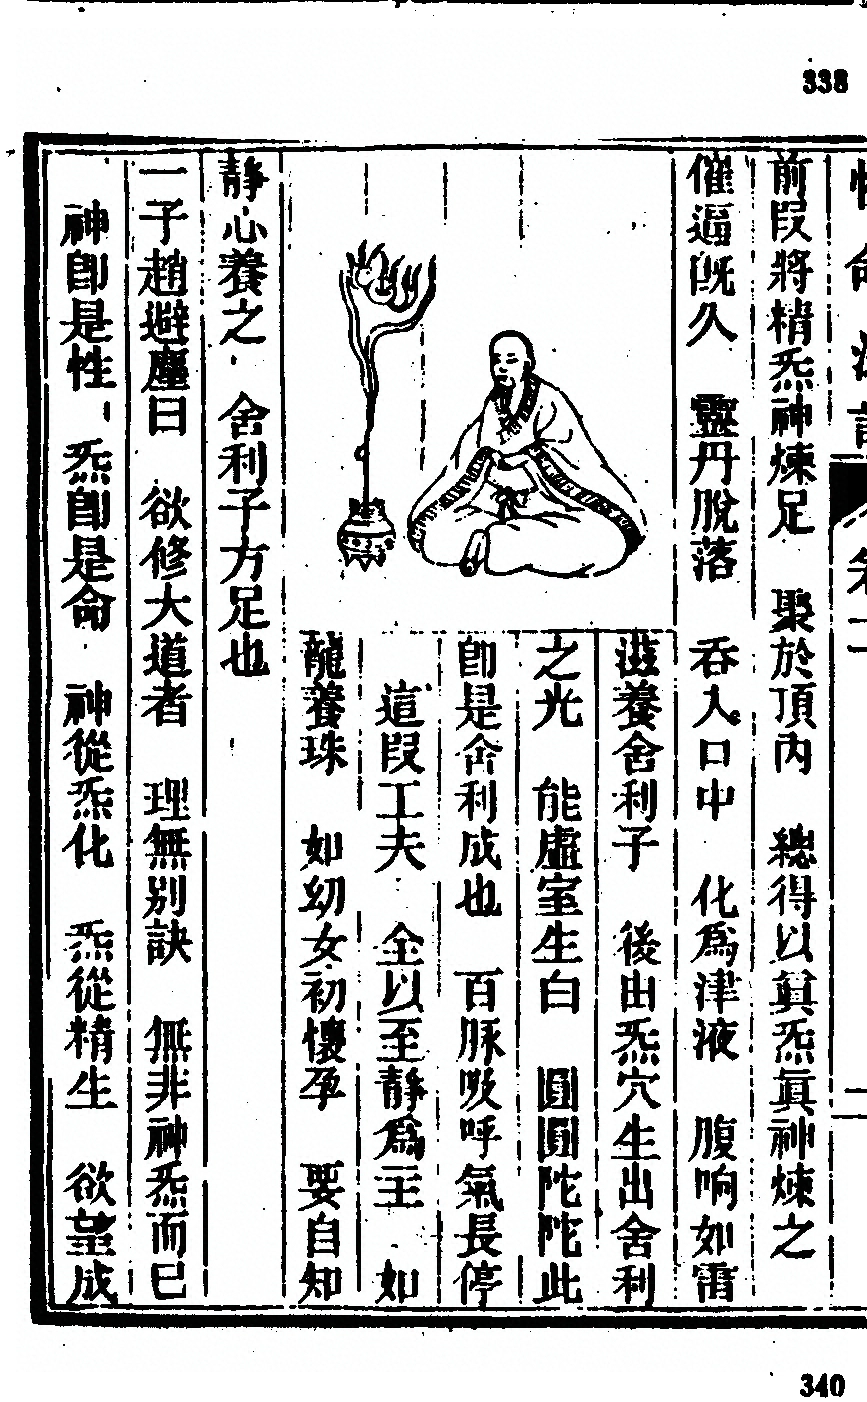 338
前段將精炁神煉足　聚於頂內　總得以眞炁眞神煉之
催逼旣久　靈丹脫落　吞入口中　化爲津液　腹响如雷
滋養舍利子　後由炁穴生出舍利
之光　能虛室生白　圓圓陀陀此
卽是舍利成也　百脉吸呼氣長停
這段工夫　全以至靜爲主　如
龍養珠　如幼女初懷孕　要自知
靜心養之　舍利子方足也
一子趙避塵曰　欲修大道者　理無別訣　無非神炁而已
神卽是性　炁卽是命　神從炁化　炁從精生　欲望成
340